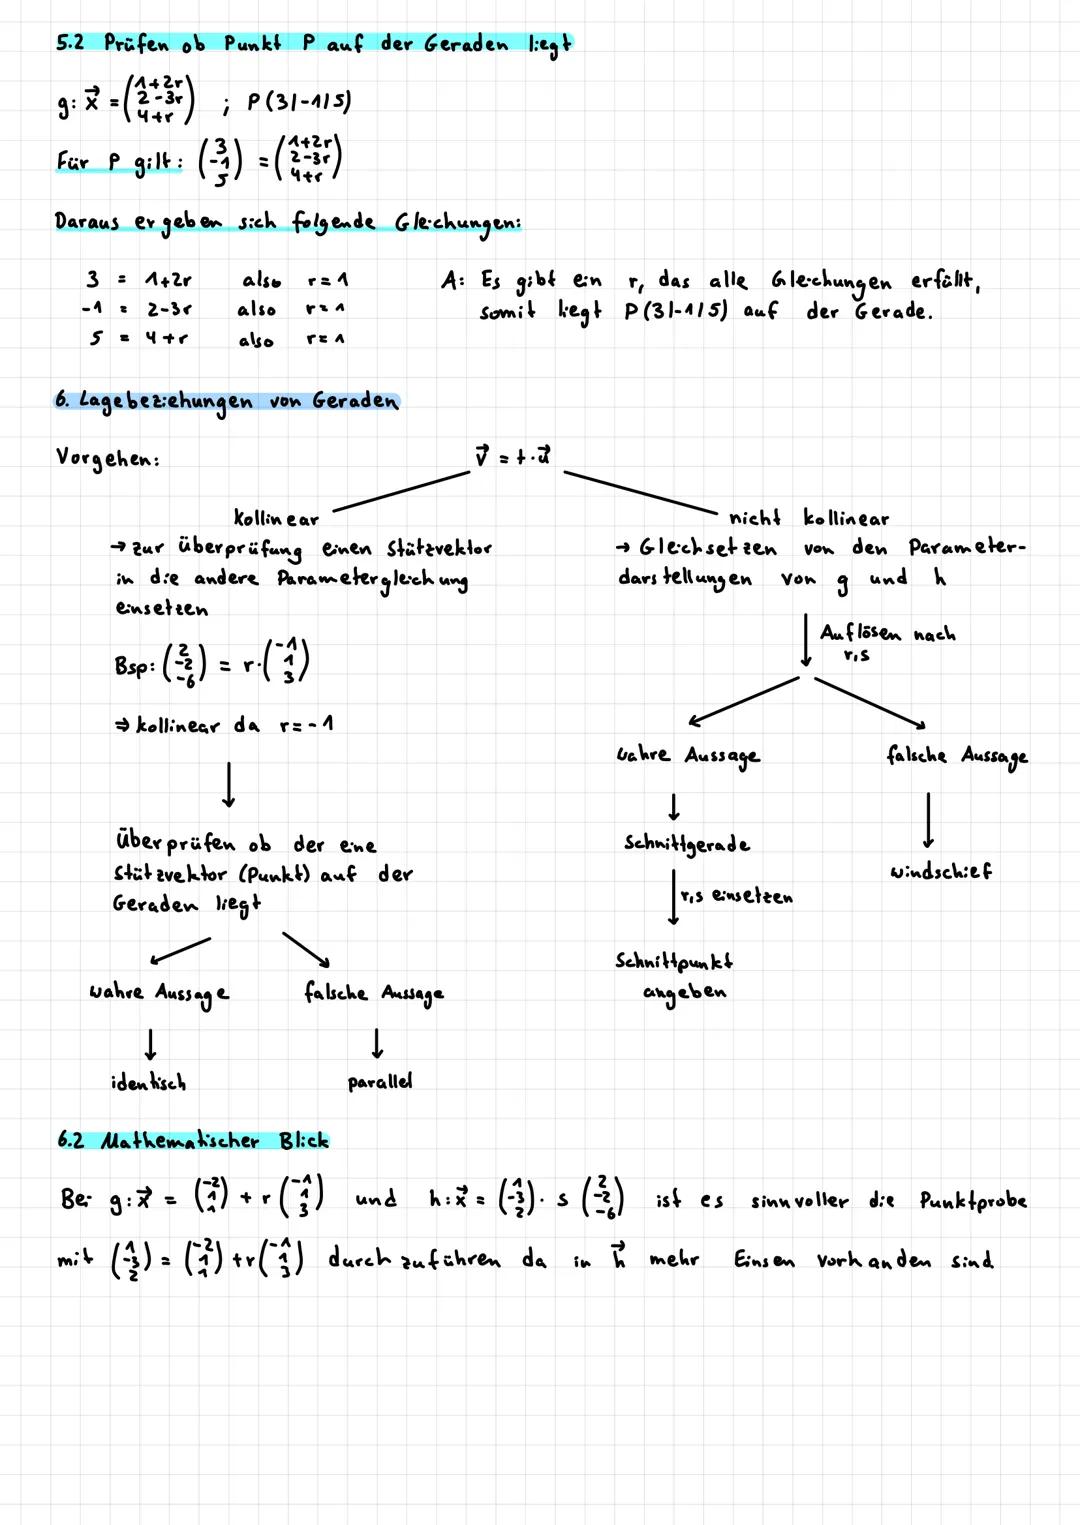 5.2 Prüfen ob Punkt P auf der Geraden liegt
g: x⃗ = (1+2r 2-3r 4+r) ; P(3|-1|5)
Für P gilt: (3 -1 5) = (1+2r 2-3r 4+r)
Daraus ergeben sich folgende Gleichungen:
3 = 1+2r also r=1
-1 = 2-3r also r=1
5 = 4+r also r=1
A: Es gibt ein r, das alle Gleichungen erfüllt,
somit liegt P(3|-1|5) auf der Gerade.
6. Lagebeziehungen von Geraden
Vorgehen:
v⃗ = t·u⃗
kollinear
→ zur überprüfung einen Stützvektor
in die andere Parametergleichung
einsetzen
Bsp: (2 -2 -6) = r·(-1 1 3)
⇒ kollinear da r=-1
Überprüfen ob der eine
Stützvektor (Punkt) auf der
Geraden liegt
wahre Aussage
falsche Aussage
identisch
parallel
nicht kollinear
→ Gleichsetzen von den Parameter-
darstellungen von g und h
Auflösen nach
r,s
wahre Aussage
falsche Aussage
Schnittgerade
windschief
r,s einsetzen
Schnittpunkt
angeben
6.2 Mathematischer Blick
Bei g: x⃗ = (-2 1 1) + r (-1 1 3) und h: x⃗ = (1 -3 2) · s (2 -2 -6) ist es sinnvoller die Punktprobe
mit (1 -3 2) = (-2 1 1) + r (-1 1 3) durchzuführen da in h⃗ mehr Einsen vorhanden sind